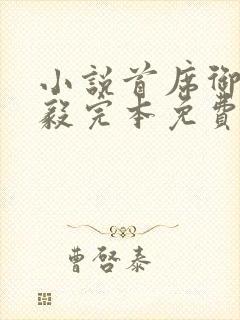 小説首席御
毅完本免費
曹啓泰